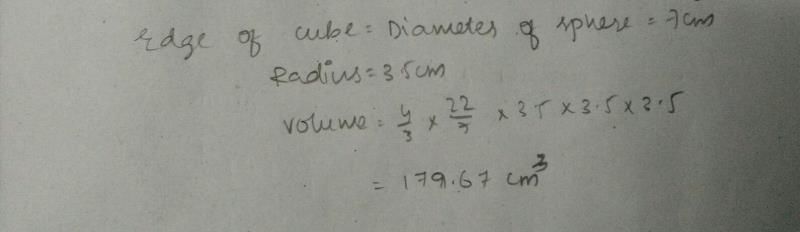 Edge of cube = Diameter of sphere = 7cm
Radius = 3.5cm
volume = 4/3 × 22/7 × 3.5 × 3.5 × 3.5
= 179.67 cm³